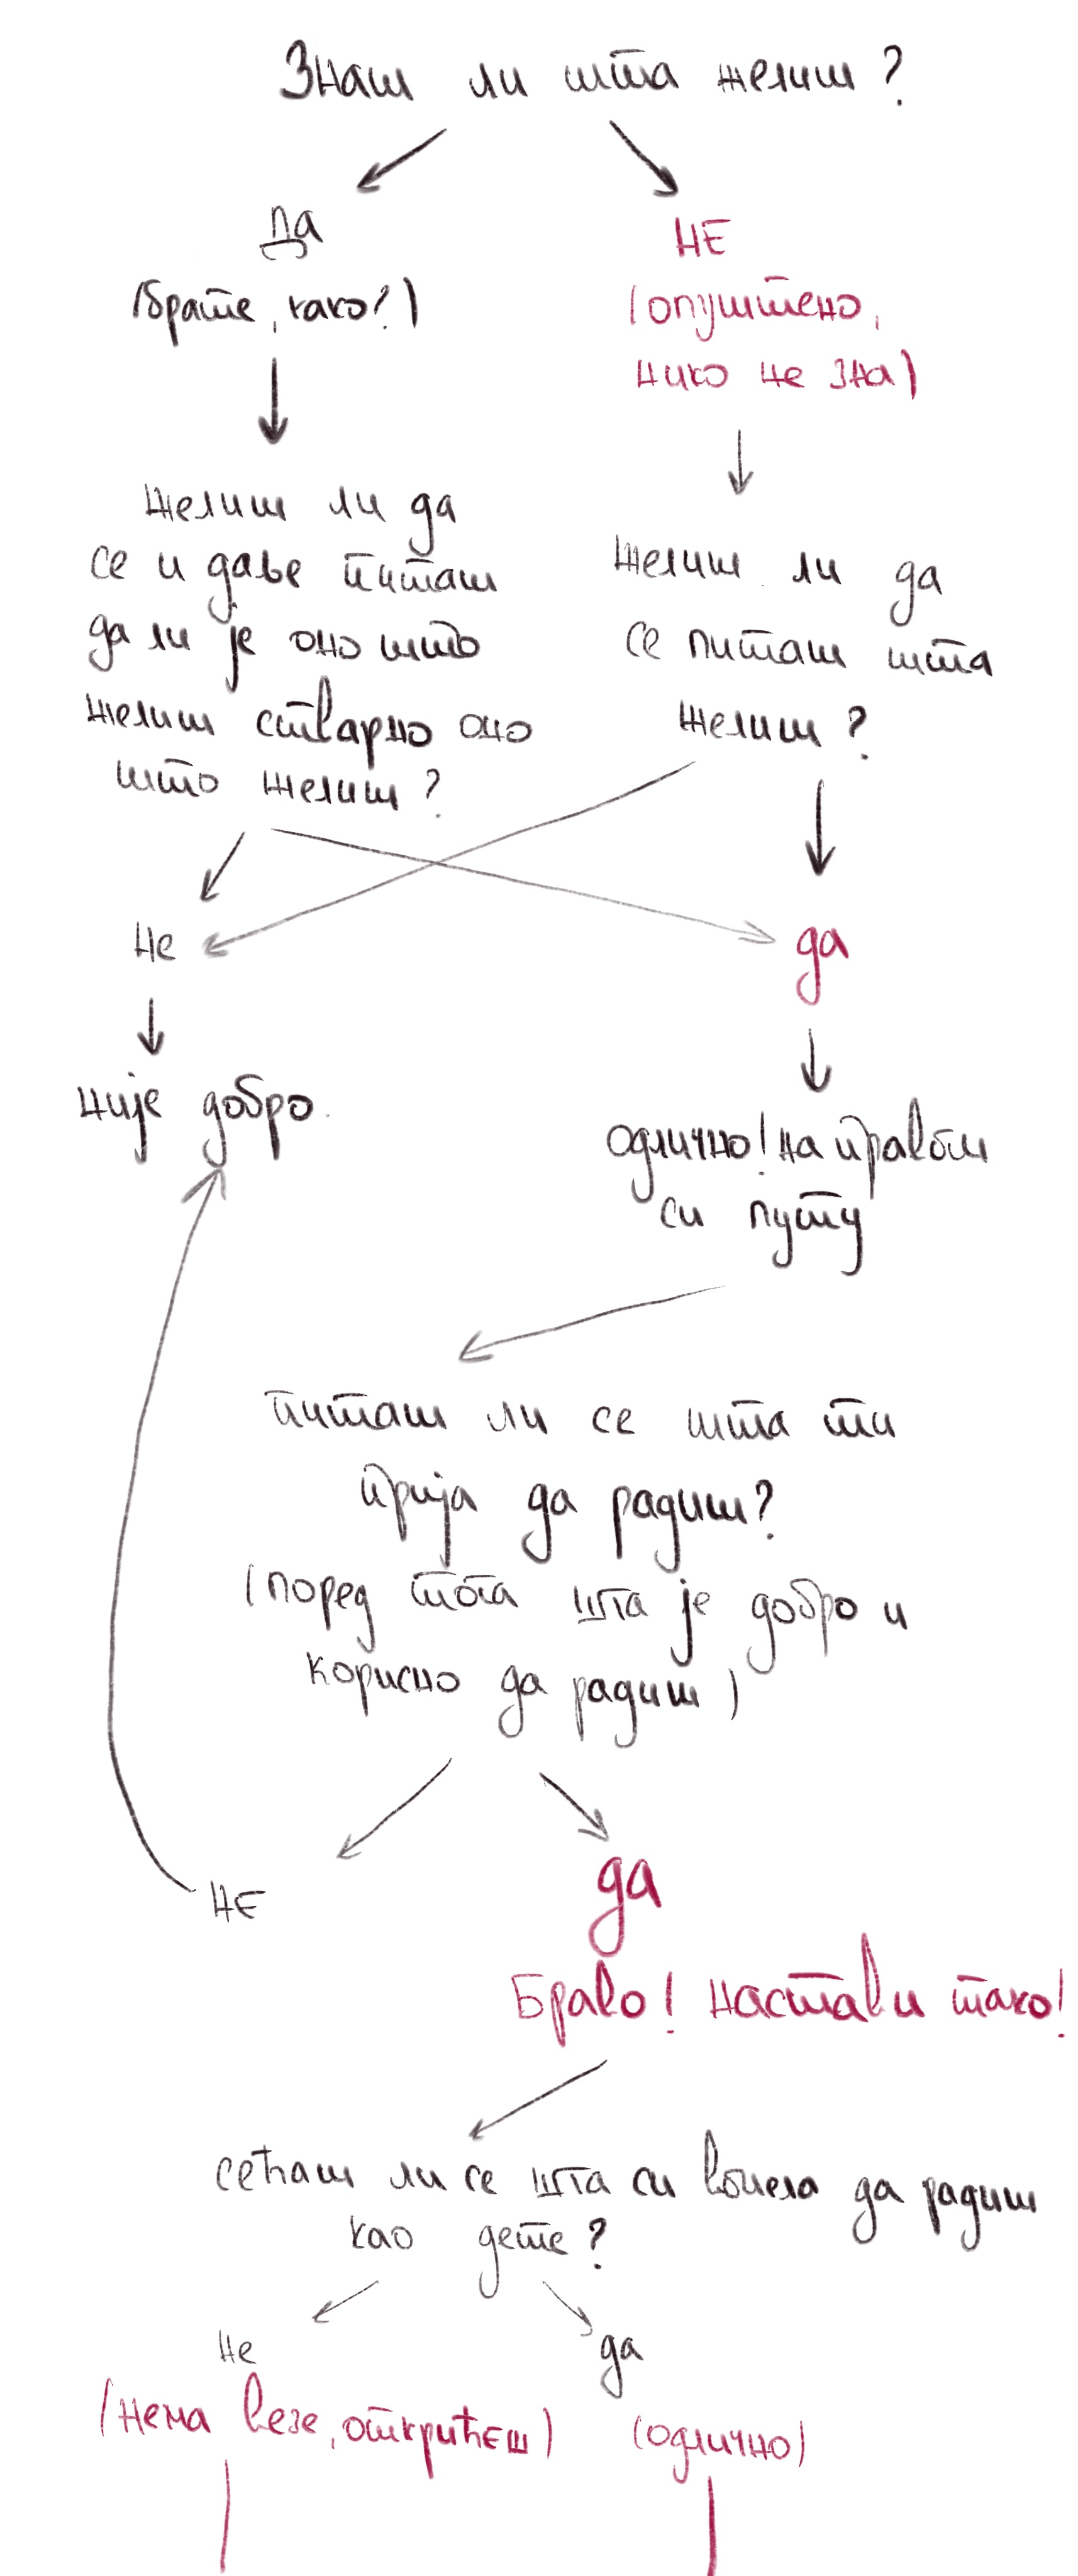 Знаш ли шта желиш?
ДА
(брате, како?)
НЕ
(опуштено,
нико не зна)
Желиш ли да
се и даље питаш
да ли је оно што
желиш стварно оно
што желиш?
Желиш ли да
се питаш шта
желиш?
Не
није добро.
да
одлично! на правом
си путу
питаш ли се шта ти
прија да радиш?
(поред тога шта је добро и
корисно да радиш)
НЕ
да
Браво! Настави тако!
сећаш ли се шта си волела да радиш
као дете?
Не
(нема везе, открићеш)
да
(одлично)